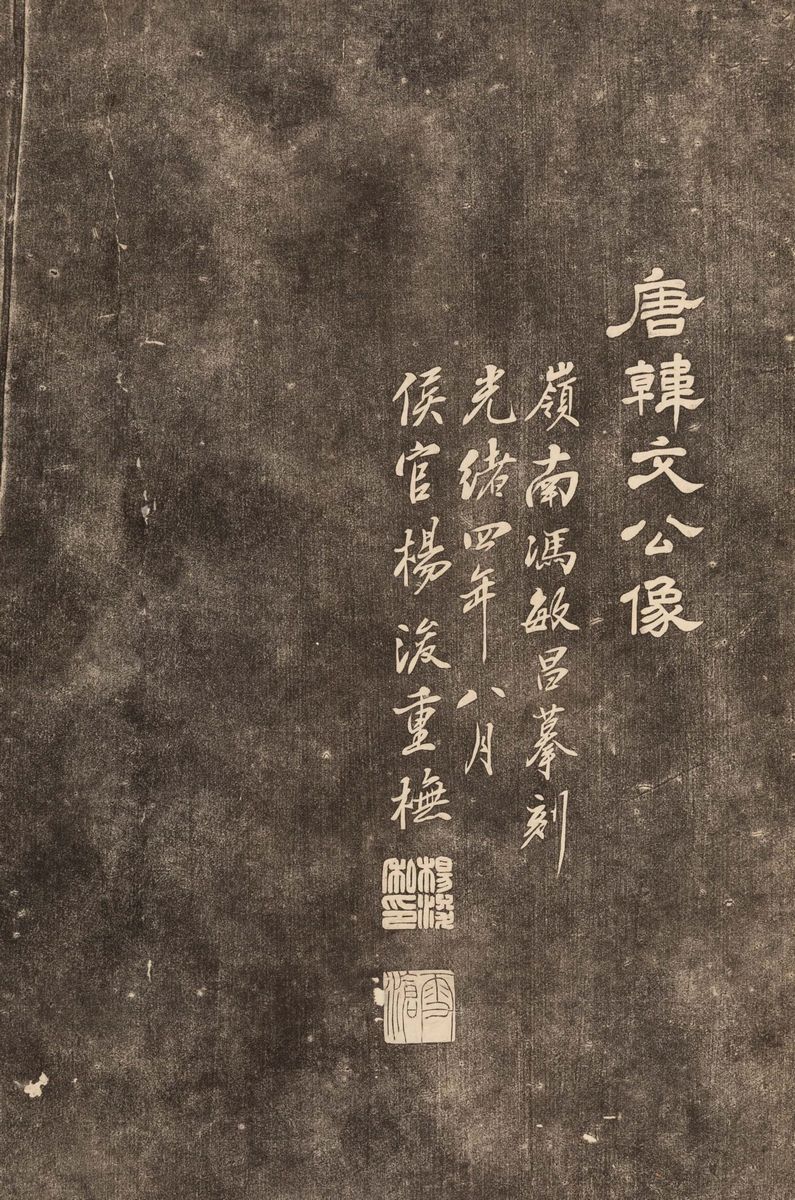 唐韓文公像
嶺南馮敏昌摹刻
光緒四年八月
侯官楊浚重橅
楊浚私印
雪滄